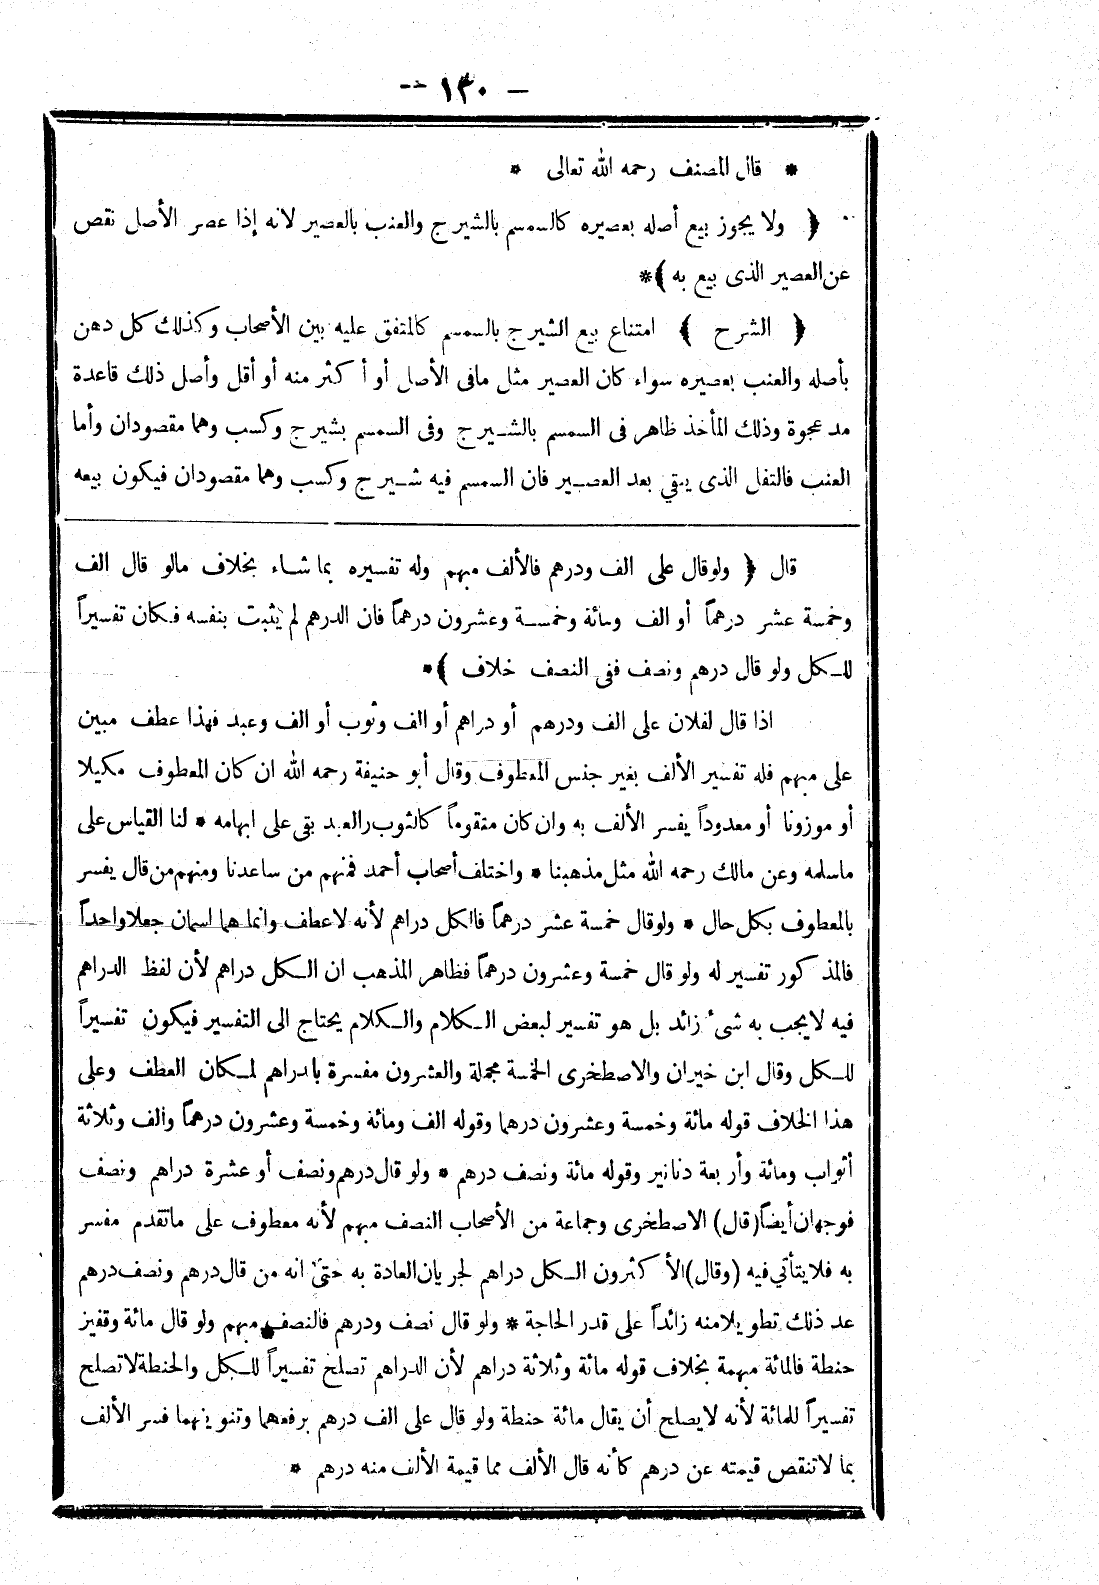 — ١٣٠ —
* قال المصنف رحمه الله تعالى *
﴿ ولا يجوز بيع أصله بعصيره كالسمسم بالشيرج والعنب بالعصير لانه إذا عصر الأصل نقص
عن العصير الذى بيع به ﴾*
﴿ الشرح ﴾ امتناع بيع الشيرج بالسمسم كالمتفق عليه بين الأصحاب وكذلك كل دهن
بأصله والعنب بعصيره سواء كان العصير مثل مافى الأصل أو أكثر منه أو أقل وأصل ذلك قاعدة
مد عجوة وذلك المأخذ ظاهر فى السمسم بالشيرج وفى السمسم بشيرج وكسب وهما مقصودان وأما
العنب فالتفل الذى يبقي بعد العصير فان السمسم فيه شيرج وكسب وهما مقصودان فيكون بيعه
قال ﴿ ولوقال على الف ودرهم فالألف مبهم وله تفسيره بما شاء بخلاف مالو قال الف
وخمسة عشر درهمًا أو الف ومائة وخمسة وعشرون درهمًا فان الدرهم لم يثبت بنفسه فكان تفسيراً
للكل ولو قال درهم ونصف ففى النصف خلاف ﴾*
اذا قال لفلان على الف ودرهم أو دراهم أو الف وثوب أو الف وعبد فهذا عطف مبين
على مبهم فله تفسير الألف بغير جنس المعطوف وقال أبو حنيفة رحمه الله ان كان المعطوف مكيلا
أو موزونا أو معدوداً يفسر الألف به وان كان متقوماً كالثوب والعبد بقى على ابهامه * لنا القياس على
ماسلمه وعن مالك رحمه الله مثل مذهبنا * واختلف أصحاب أحمد فمنهم من ساعدنا ومنهم من قال يفسر
بالمعطوف بكل حال * ولوقال خمسة عشر درهمًا فالكل دراهم لأنه لاعطف وانما هما اسمان جعلا واحداً
فالمذكور تفسير له ولو قال خمسة وعشرون درهمًا فظاهر المذهب ان الكل دراهم لأن لفظ الدراهم
فيه لايجب به شىء زائد بل هو تفسير لبعض الكلام والكلام يحتاج الى التفسير فيكون تفسيراً
للكل وقال ابن خيران والاصطخرى الخمسة مجملة والعشرون مفسرة بالدراهم لمكان العطف وعلى
هذا الخلاف قوله مائة وخمسة وعشرون درهما وقوله الف ومائة وخمسة وعشرون درهمًا والف وثلاثة
أثواب ومائة وأربعة دنانير وقوله مائة ونصف درهم * ولو قال درهم ونصف أو عشرة دراهم ونصف
فوجهان أيضاً (قال) الاصطخرى وجماعة من الأصحاب النصف مبهم لأنه معطوف على ماتقدم مفسر
به فلا يتأتي فيه (وقال) الأكثرون الكل دراهم لجريان العادة به حتى انه من قال درهم ونصف درهم
عد ذلك تطويلا منه زائداً على قدر الحاجة * ولو قال نصف ودرهم فالنصف مبهم ولو قال مائة وقفيز
حنطة فالمائة مبهمة بخلاف قوله مائة وثلاثة دراهم لأن الدراهم تصلح تفسيراً للكل والحنطة لاتصلح
تفسيراً للمائة لأنه لايصلح أن يقال مائة حنطة ولو قال على الف درهم برفعهما وتنوينهما فسر الألف
بما لاتنقص قيمته عن درهم كأنه قال الألف مما قيمة الألف منه درهم *